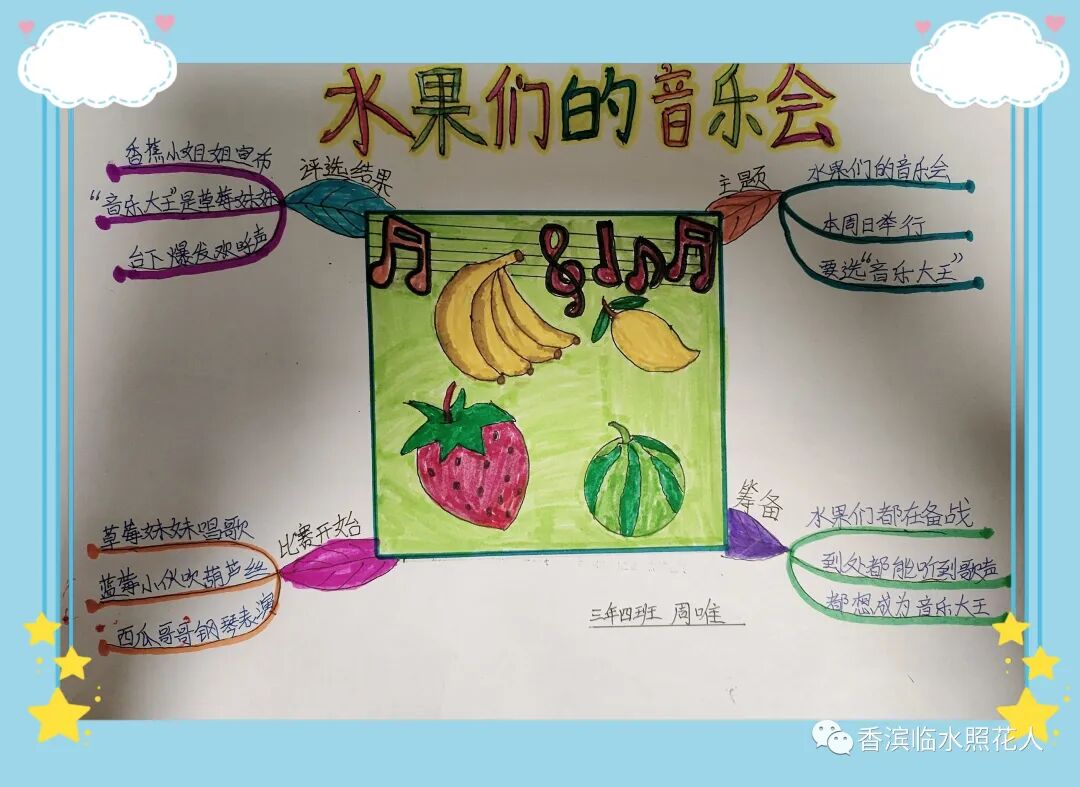 水果们的音乐会
评选结果
香蕉小姐姐宣布
“音乐大王”是草莓妹妹
台下爆发欢呼声
主题
水果们的音乐会
本周日举行
要选“音乐大王”
比赛开始
草莓妹妹唱歌
蓝莓小伙吹葫芦丝
西瓜哥哥钢琴表演
筹备
水果们都在备战
到处都能听到歌声
都想成为音乐大王
三年四班 周唯
香滨临水照花人